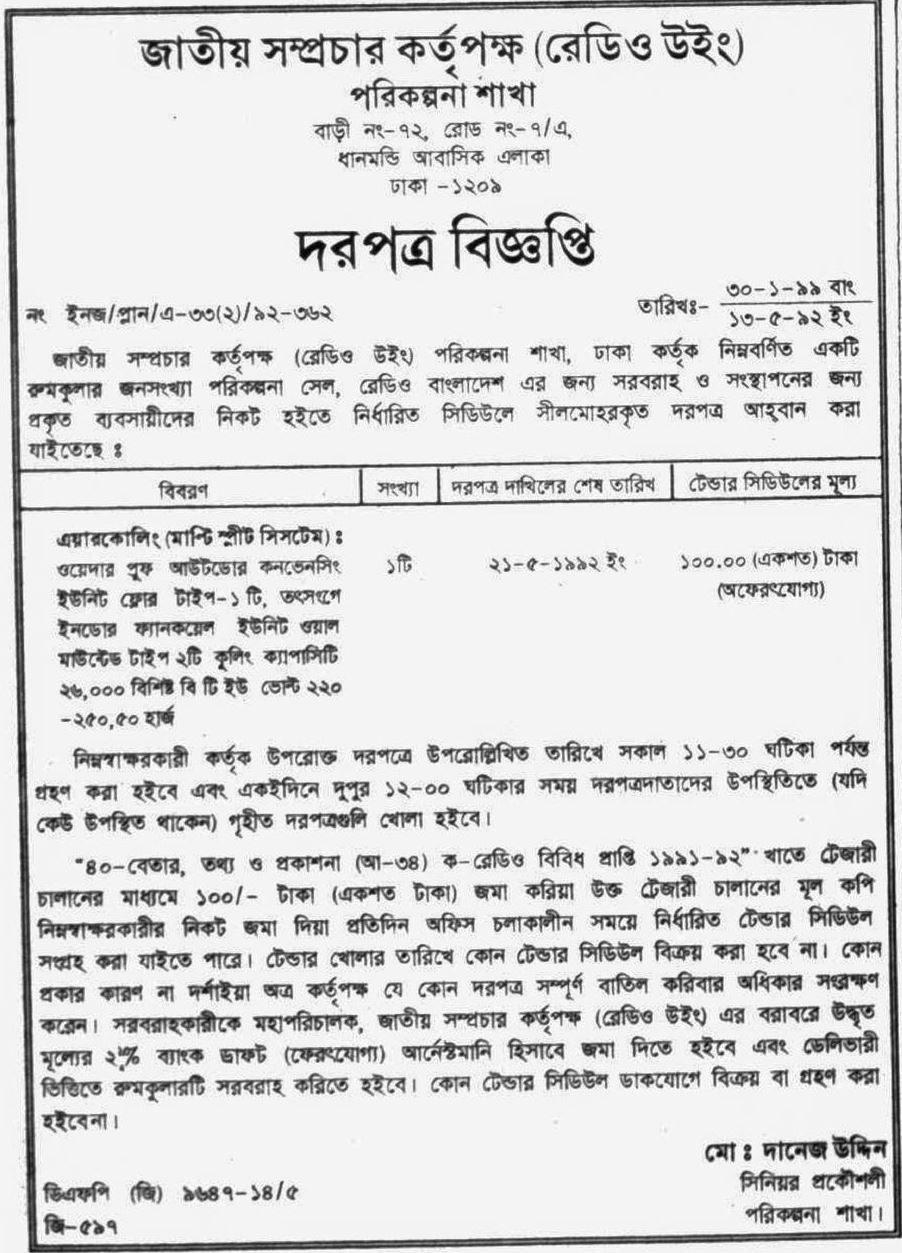 জাতীয় সম্প্রচার কর্তৃপক্ষ (রেডিও উইং)
পরিকল্পনা শাখা
বাড়ী নং-৭২, রোড নং-৭/এ,
ধানমন্ডি আবাসিক এলাকা
ঢাকা -১২০৯
দরপত্র বিজ্ঞপ্তি
৩০-১-৯৯ বাং
নং ইনজ/প্লান/এ-৩৩(২)/৯২-৩৬২ তারিখঃ-
১৩-৫-৯২ ইং
জাতীয় সম্প্রচার কর্তৃপক্ষ (রেডিও উইং) পরিকল্পনা শাখা, ঢাকা কর্তৃক নিম্নবর্ণিত একটি
রুমকুলার জনসংখ্যা পরিকল্পনা সেল, রেডিও বাংলাদেশ এর জন্য সরবরাহ ও সংস্থাপনের জন্য
প্রকৃত ব্যবসায়ীদের নিকট হইতে নির্ধারিত সিডিউলে সীলমোহরকৃত দরপত্র আহবান করা
যাইতেছে ঃ
বিবরণ সংখ্যা দরপত্র দাখিলের শেষ তারিখ টেন্ডার সিডিউলের মূল্য
এয়ারকোলিং (মাল্টি স্প্লীট সিসটেম) ঃ
ওয়েদার প্রুফ আউটডোর কনডেনসিং ১টি ২১-৫-১৯৯২ ইং ১০০.০০ (একশত) টাকা
ইউনিট ফ্লোর টাইপ-১ টি, তৎসংগে (অফেরৎযোগ্য)
ইনডোর ফ্যানকয়েল ইউনিট ওয়াল
মাউন্টেড টাইপ ২টি কুলিং ক্যাপাসিটি
২৬,০০০ বিশিষ্ট বি টি ইউ ভোল্ট ২২০
-২৫০,৫০ হার্জ
নিম্নস্বাক্ষরকারী কর্তৃক উপরোক্ত দরপত্রে উপরোল্লিখিত তারিখে সকাল ১১-৩০ ঘটিকা পর্যন্ত
গ্রহণ করা হইবে এবং একইদিনে দুপুর ১২-০০ ঘটিকার সময় দরপত্রদাতাদের উপস্থিতিতে (যদি
কেউ উপস্থিত থাকেন) গৃহীত দরপত্রগুলি খোলা হইবে।
"৪০-বেতার, তথ্য ও প্রকাশনা (আ-৩৪) ক-রেডিও বিবিধ প্রাপ্তি ১৯৯১-৯২" খাতে ট্রেজারী
চালানের মাধ্যমে ১০০/- টাকা (একশত টাকা) জমা করিয়া উক্ত ট্রেজারী চালানের মূল কপি
নিম্নস্বাক্ষরকারীর নিকট জমা দিয়া প্রতিদিন অফিস চলাকালীন সময়ে নির্ধারিত টেন্ডার সিডিউল
সংগ্রহ করা যাইতে পারে। টেন্ডার খোলার তারিখে কোন টেন্ডার সিডিউল বিক্রয় করা হবে না। কোন
প্রকার কারণ না দর্শাইয়া অত্র কর্তৃপক্ষ যে কোন দরপত্র সম্পূর্ণ বাতিল করিবার অধিকার সংরক্ষণ
করেন। সরবরাহকারীকে মহাপরিচালক, জাতীয় সম্প্রচার কর্তৃপক্ষ (রেডিও উইং) এর বরাবরে উদ্ধৃত
মূল্যের % ব্যাংক ড্রাফট (ফেরৎযোগ্য) আর্নেষ্টমানি হিসাবে জমা দিতে হইবে এবং ডেলিভারী
ভিত্তিতে রুমকুলারটি সরবরাহ করিতে হইবে। কোন টেন্ডার সিডিউল ডাকযোগে বিক্রয় বা গ্রহণ করা
হইবেনা।
মো ঃ দানেজ উদ্দিন
ডিএফপি (জি) ৯৬৪৭-১৪/৫ সিনিয়র প্রকৌশলী
জি-৫৯৭ পরিকল্পনা শাখা।